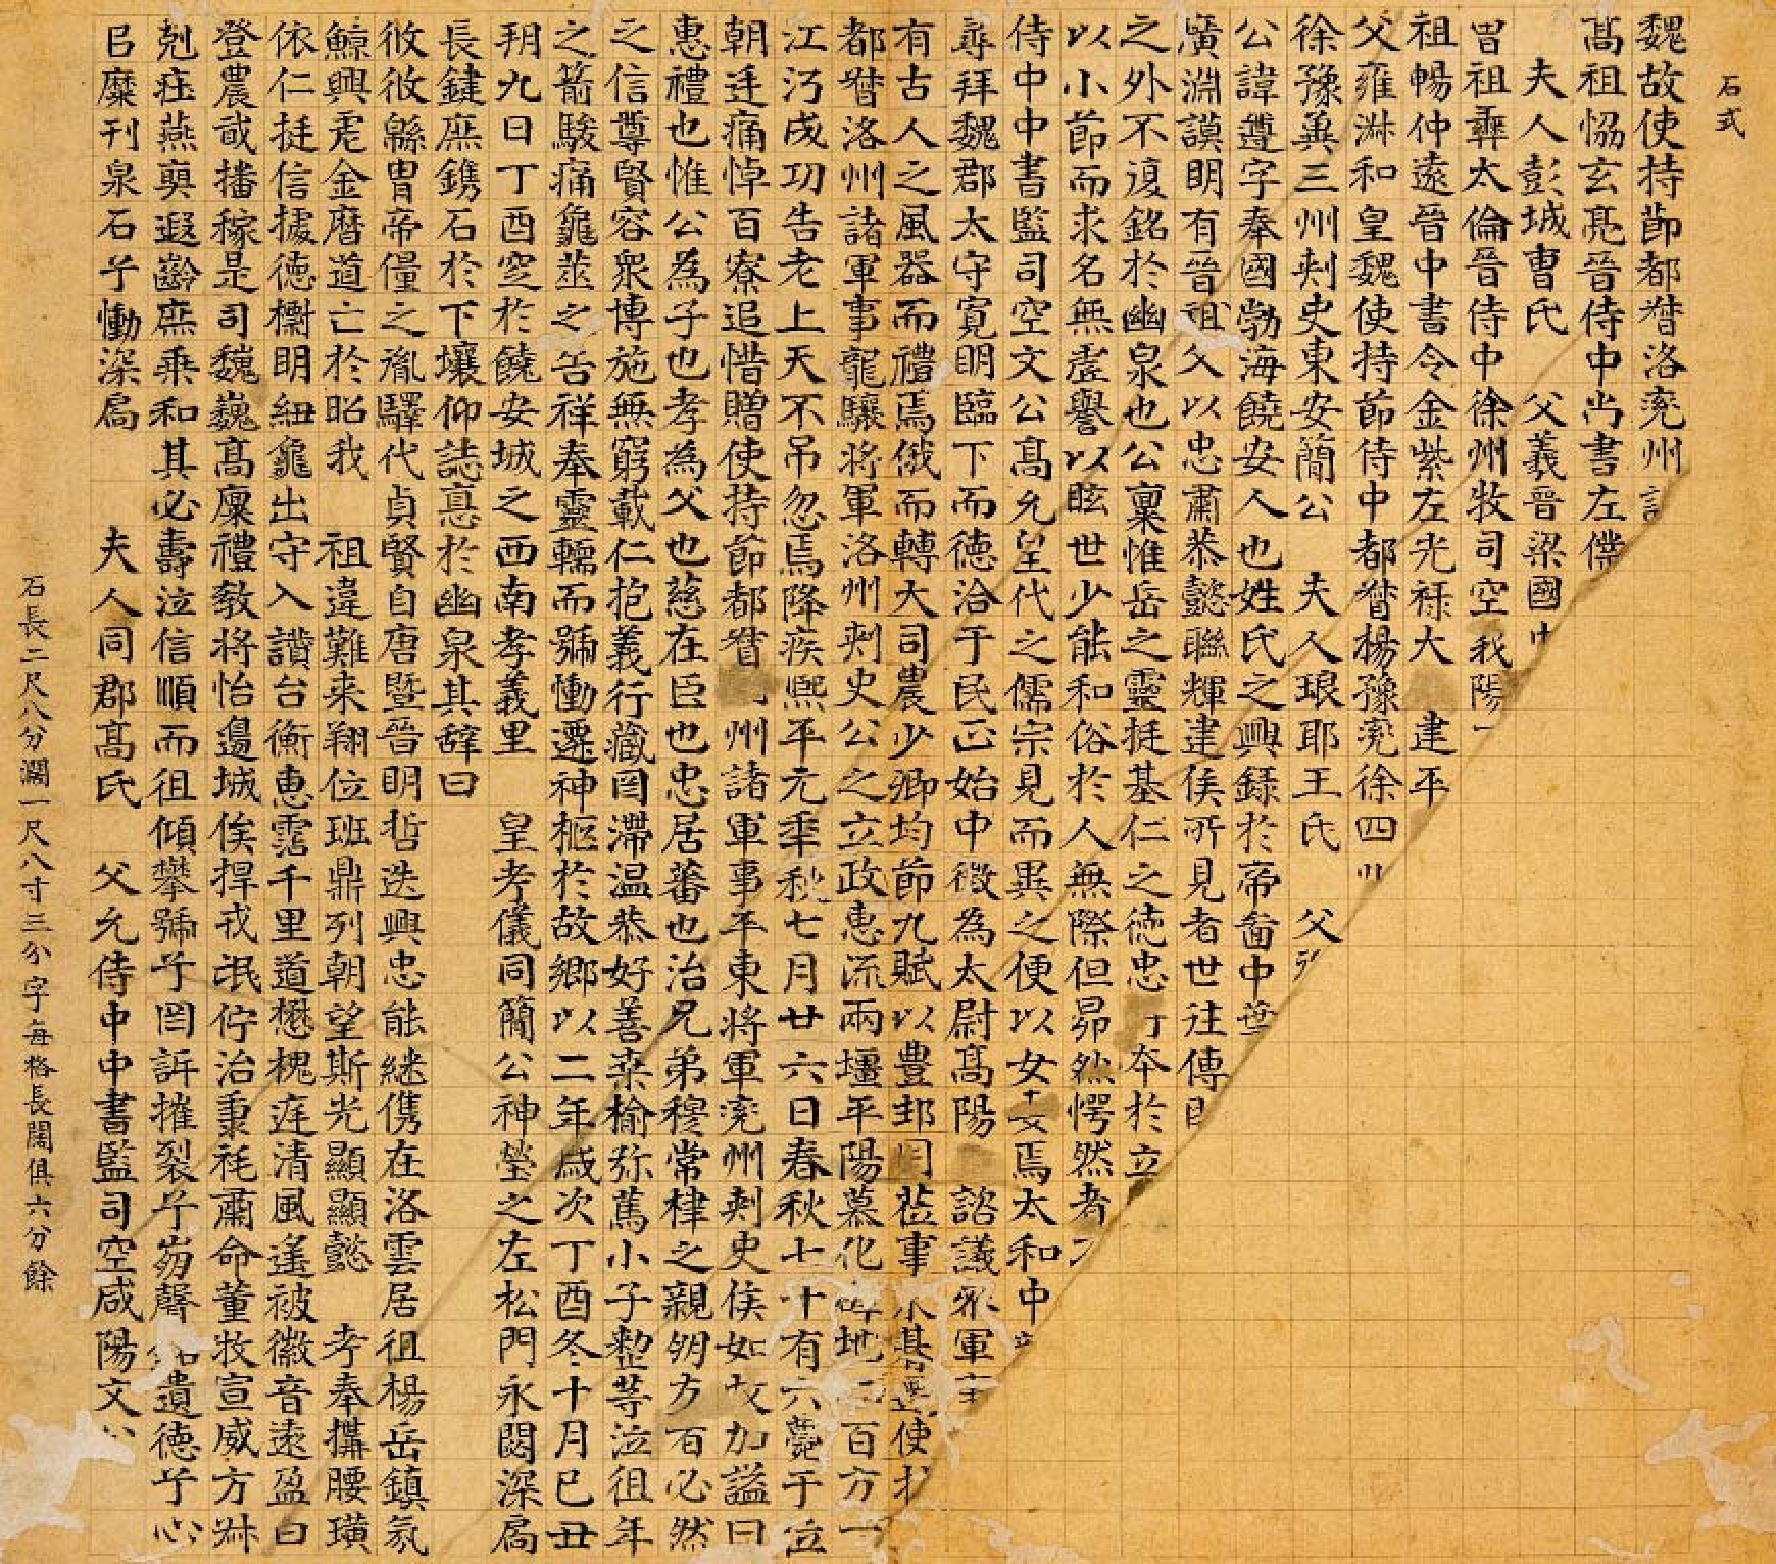 石式
魏故使持節都督洛兗州
髙祖恊玄亮晉侍中尚書左僕
夫人彭城曹氏 父義晉梁國
曽祖彛太倫晉侍中徐州牧司空義陽
祖暢仲遠晉中書令金紫左光禄大 建平
父雍淋和皇魏使持節侍中都督楊豫兗徐四
徐豫兾三州刺史東安簡公 夫人琅耶王氏 父
公諱遵字奉國勃海饒安人也姓氏之興録於帝啚中葉
廣淵謨明有晉祖父以忠肅恭懿聯輝建侯所見者世往傳
之外不復銘於幽泉也公稟惟岳之靈挺基仁之徳忠行夲於立
以小節而求名無虗譽以眩世少能和俗於人無際但昴然愕然者
侍中中書監司空文公髙允皇代之儒宗見而異之便以女妻焉太和中
尋拜魏郡太守寛明臨下而徳洽于民正始中徵為太尉髙陽 諮議叅軍
有古人之風器而禮焉俄而轉大司農少卿均節九賦以豊邦用莅事 朞 使
都督洛州諸軍事龍驤将軍洛州刺史公之立政惠流兩壃平陽慕化 地二百方一
江沔成功告老上天不吊忽焉降疾熈平元秊秋七月廿六日春秋七十有六薨于位
朝廷痛悼百寮追惜贈使持節都督 州諸軍事平東将軍兗州刺史侯如故加謚曰
惠禮也惟公為子也孝為父也慈在臣也忠居蕃也治兄弟穆常棣之親朋友百必然
之信尊賢容衆博施無窮載仁抱義行藏罔滯温恭好善桒榆弥篤小子整等泣徂年
之箭駿痛龜莁之告祥奉靈轜而號慟遷神柩於故鄉以二年歲次丁酉冬十月己丑
朔九日丁酉窆於饒安城之西南孝義里 皇考儀同簡公神塋之左松門永閟深扃
長鍵庶鐫石於下壤仰誌悳於幽泉其辝曰
攸攸緜胄帝僮之胤驛代貞賢自唐暨晉明哲迭興忠能継儁在洛雲居徂楊岳鎮氛
鯨興虐金曆道亡於昭我 祖違難来翔位班鼎列朝望斯光顯顯懿 考奉攜腰璜
依仁挺信據徳櫉明紐龜出守入讚台衡惠霑千里道懋槐庭清風遙被徽音遠盈曰
登農菽播稼是司魏巍髙廩禮敎将怡邉城俟捍戎氓佇治秉秏肅命董牧宣威方淋
尅莊燕輿遐齡庶乗和其必壽泣信順而徂傾攀號兮罔訴摧裂兮崩聲銘遺徳兮心
㠯糜刊泉石兮慟深扃 夫人同郡髙氏 父允侍中中書監司空咸陽文公
石長二尺八分濶一尺八寸三分字每格長闊俱六分餘